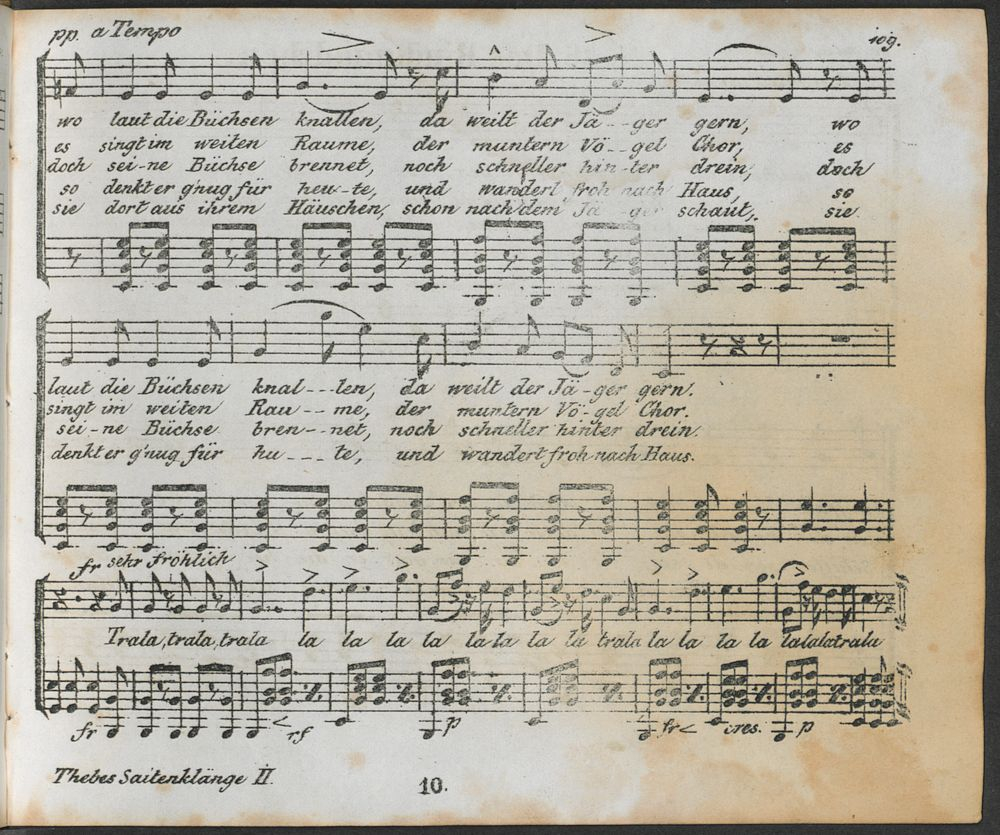 pp. a Tempo
109.
wo laut die Büchsen knallen, da weilt der Jä - - ger gern, wo
es singt im weiten Raume, der muntern Vö - - gel Chor, es
doch sei - ne Büchse brennet, noch schneller hin - ter drein, doch
so denkt er g'nug für heu - te, und wandert froh nach Haus, so
sie dort aus ihrem Häuschen, schon nach dem Jä - ger schaut, sie
laut die Büchsen knal - - - len, da weilt der Jä - ger gern.
singt im weiten Rau - - me, der muntern Vö - gel Chor.
sei - ne Büchse bren - - net, noch schneller hinter drein.
denkt er g'nug für hu - - - te, und wandert froh nach Haus.
fr sehr fröhlich
Trala, trala, trala la la la la la la la la trala la la la la lalalatrala
fr < rf p fr < cres. p
Thebes Saitenklänge II.
10.